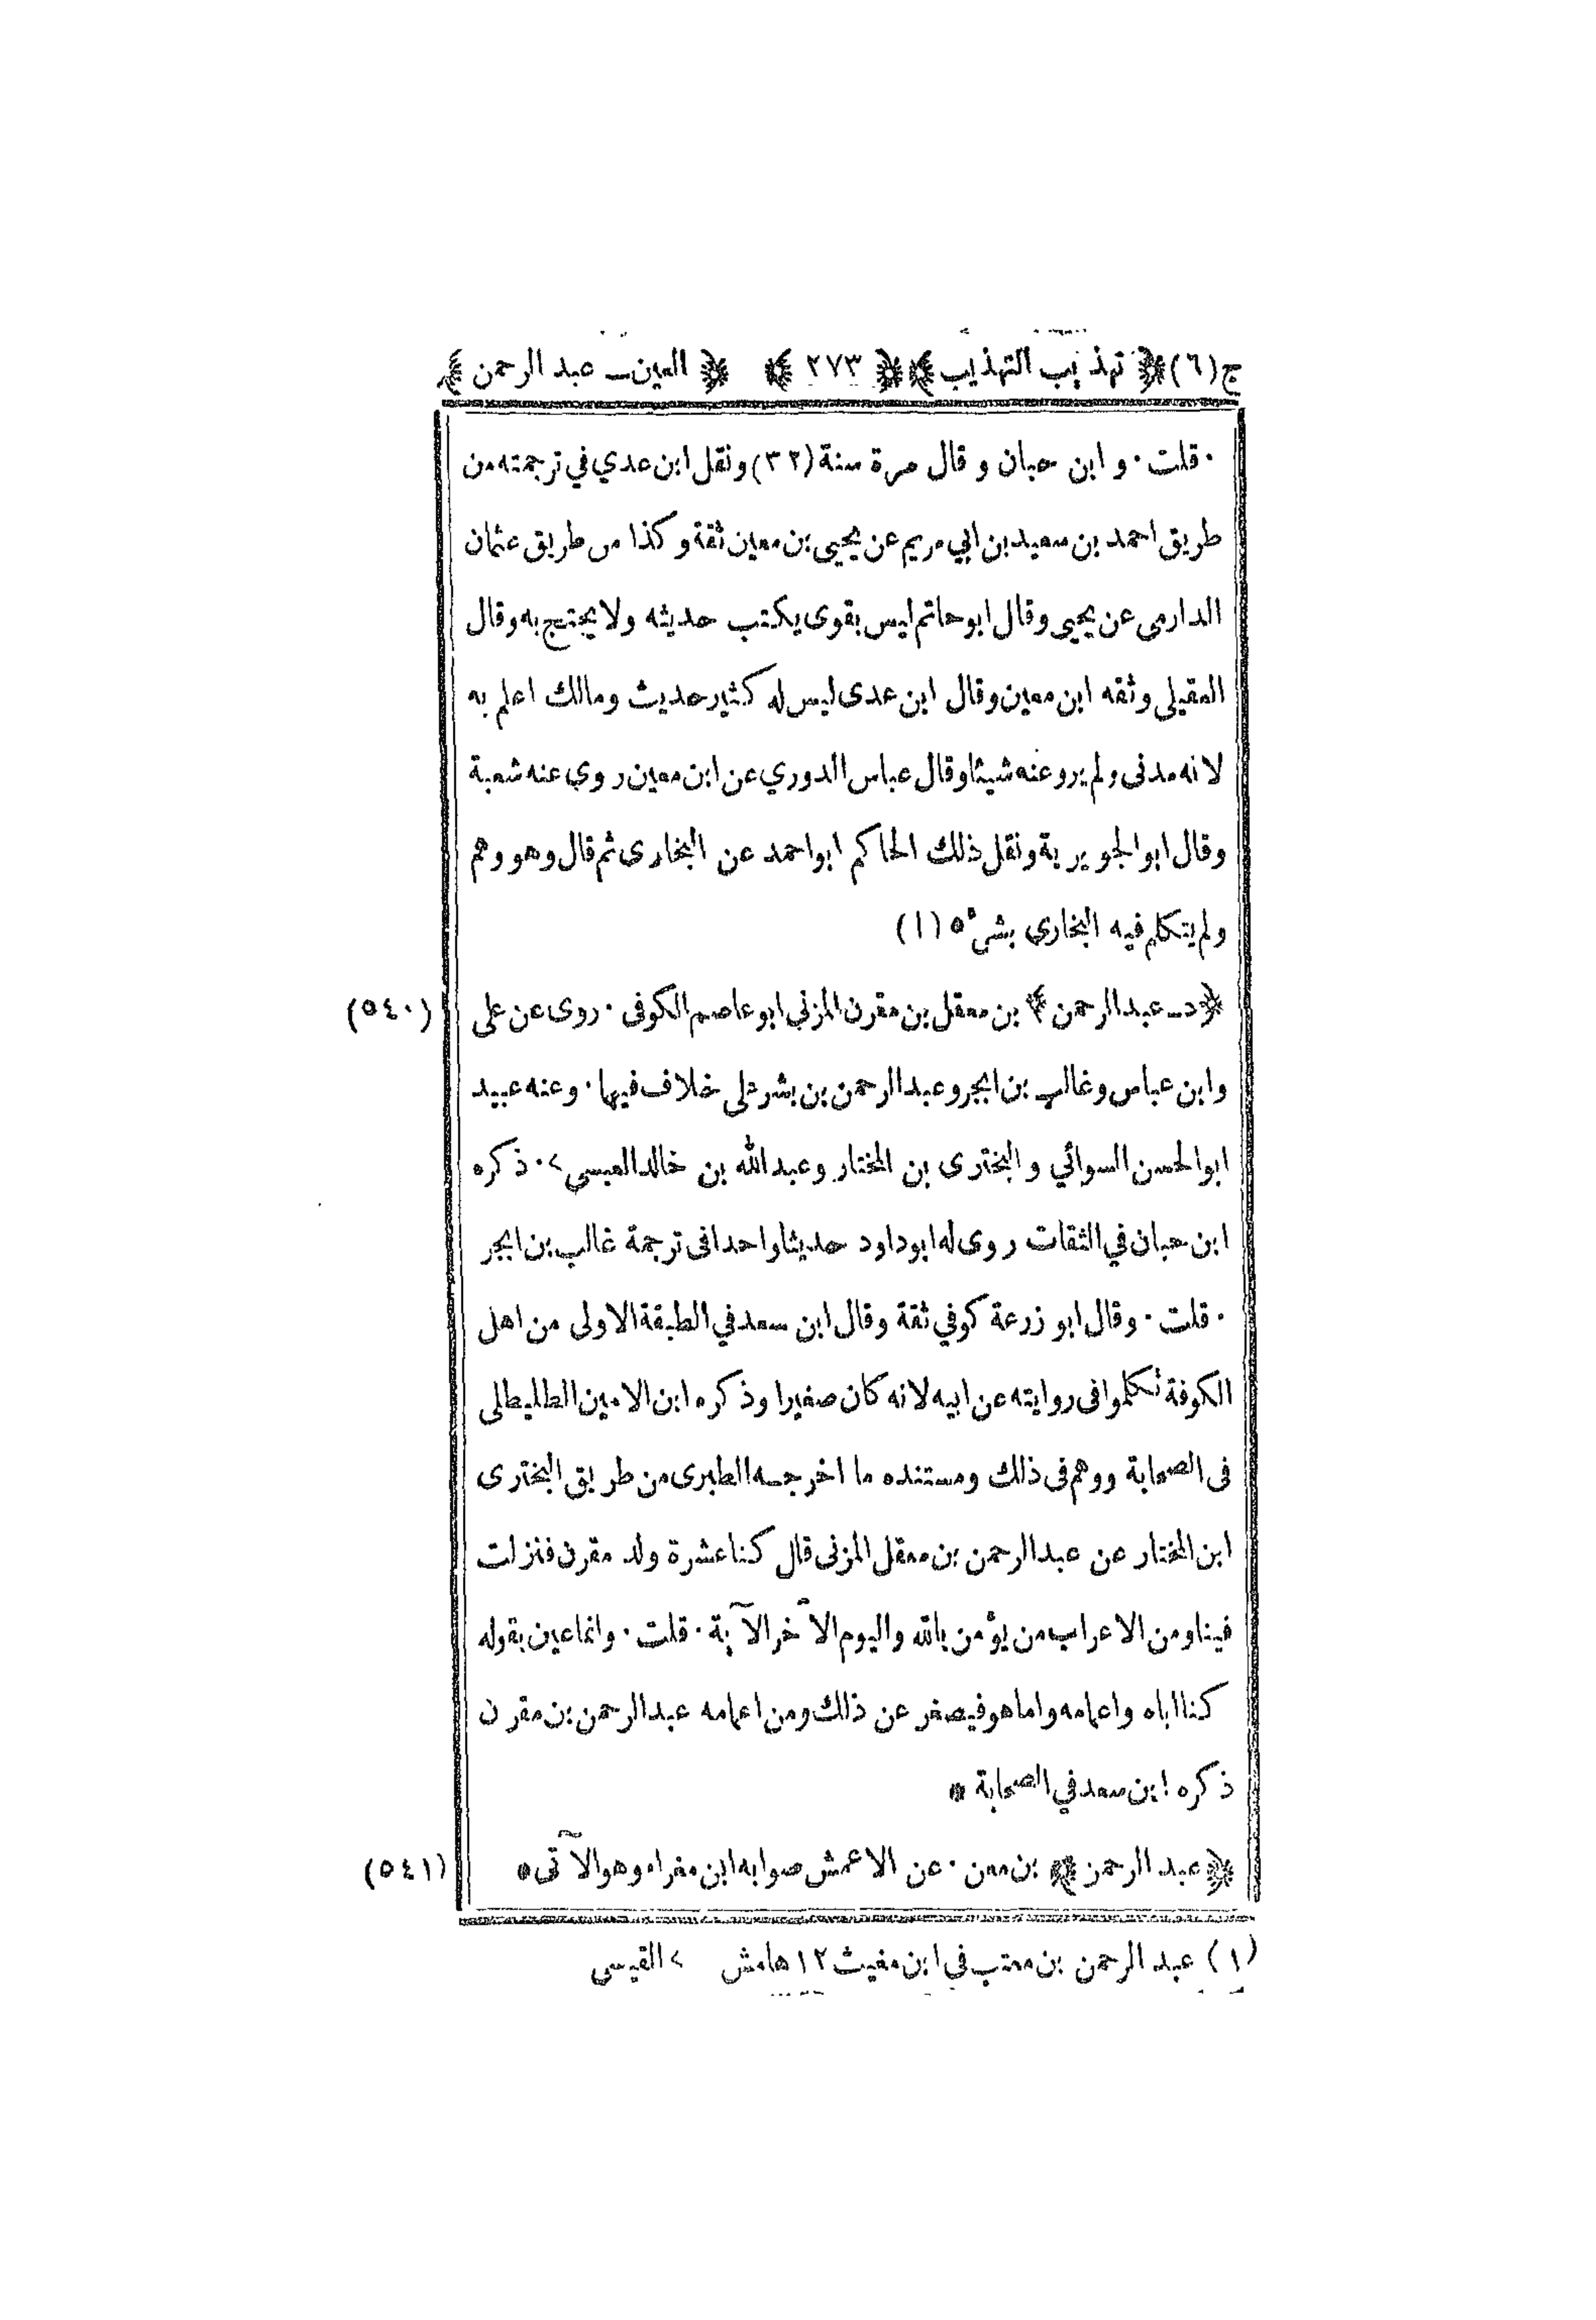 ج(٦) ﴿ تهذيب التهذيب ﴾ ﴿ ٢٧٣ ﴾ ﴿ العين ـ عبد الرحمن ﴾
٠ قلت ٠ و ابن حبان و قال مرة سنة (٣٢) ونقل ابن عدي في ترجمته من
طريق احمد بن سعيد بن ابي مريم عن يحيى بن معين ثقة و كذا من طريق عثمان
الدارمى عن يحيى وقال ابو حاتم ليس بقوى يكتب حديثه ولا يحتج به وقال
العقيلى وثقه ابن معين وقال ابن عدى ليس له كثير حديث ومالك اعلم به
لانه مدنى ولم يرو عنه شيئا وقال عباس الدوري عن ابن معين روى عنه شعبة
وقال ابو الجويرية ونقل ذلك الحاكم ابو احمد عن البخارى ثم قال وهو وهم
ولم يتكلم فيه البخاري بشيء ٥ (١)
﴿ د ـ عبد الرحمن ﴾ بن معقل بن مقرن المزني ابو عاصم الكوفى ٠ روى عن على (٥٤٠)
وابن عباس وغالب بن ابجر وعبد الرحمن بن بشر على خلاف فيها ٠ وعنه عبيد
ابو الحسن السوائي و البخترى بن المختار وعبد الله بن خالد العبسي > ٠ ذكره
ابن حبان في الثقات روى له ابو داود حديثا واحدا فى ترجمة غالب بن ابجر
٠ قلت ٠ وقال ابو زرعة كوفي ثقة وقال ابن سعد في الطبقة الاولى من اهل
الكوفة تكلموا فى روايته عن ابيه لانه كان صغيرا وذكره ابن الامين الطليطلى
فى الصحابة ووهم فى ذلك ومستنده ما اخرجه الطبرى من طريق البخترى
ابن المختار عن عبد الرحمن بن معقل المزنى قال كنا عشرة ولد مقرن فنزلت
فينا ومن الاعراب من يؤمن بالله واليوم الآخر الآية ٠ قلت ٠ وانما عين بقوله
كنا اباه واعمامه واما هو فيصغر عن ذلك ومن اعمامه عبد الرحمن بن مقرن
ذكره ابن سعد في الصحابة *
﴿ عبد الرحمن ﴾ بن معن ٠ عن الاعمش صوابه ابن مغراء وهو الآتى * (٥٤١)
(١) عبد الرحمن بن معتب فى ابن مغيث ١٢ هامش > القيسى